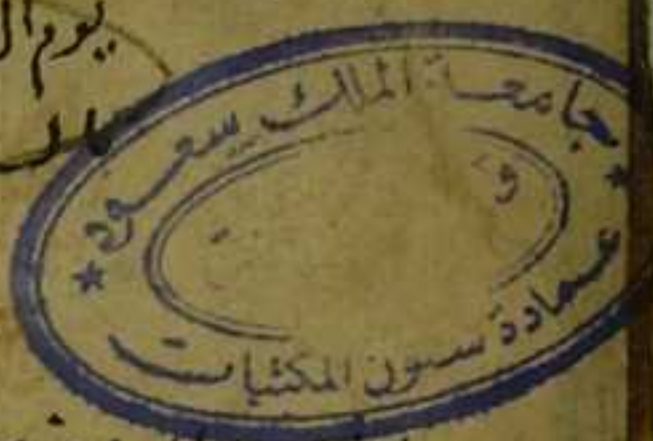 يوم
جامعة الملك سعود
عمادة شئون المكتبات